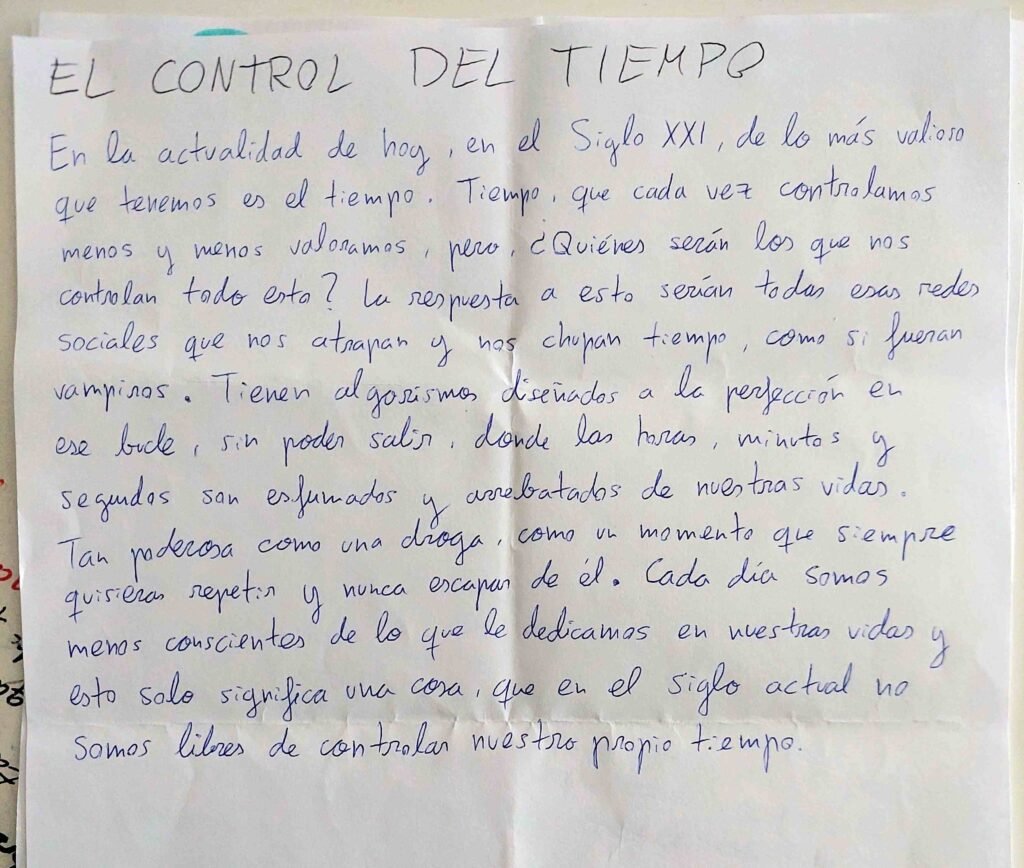 EL CONTROL DEL TIEMPO
En la actualidad de hoy, en el Siglo XXI, de lo más valioso
que tenemos es el tiempo. Tiempo, que cada vez controlamos
menos y menos valoramos, pero, ¿Quiénes serán los que nos
controlan todo esto? La respuesta a esto serían todas esas redes
sociales que nos atrapan y nos chupan tiempo, como si fueran
vampiros. Tienen algorismos diseñados a la perfección en
ese bucle, sin poder salir, donde las horas, minutos y
segundos son esfumados y arrebatados de nuestras vidas.
Tan poderosa como una droga, como un momento que siempre
quisieras repetir y nunca escapar de él. Cada día somos
menos conscientes de lo que le dedicamos en nuestras vidas y
esto solo significa una cosa, que en el siglo actual no
somos libres de controlar nuestro propio tiempo.